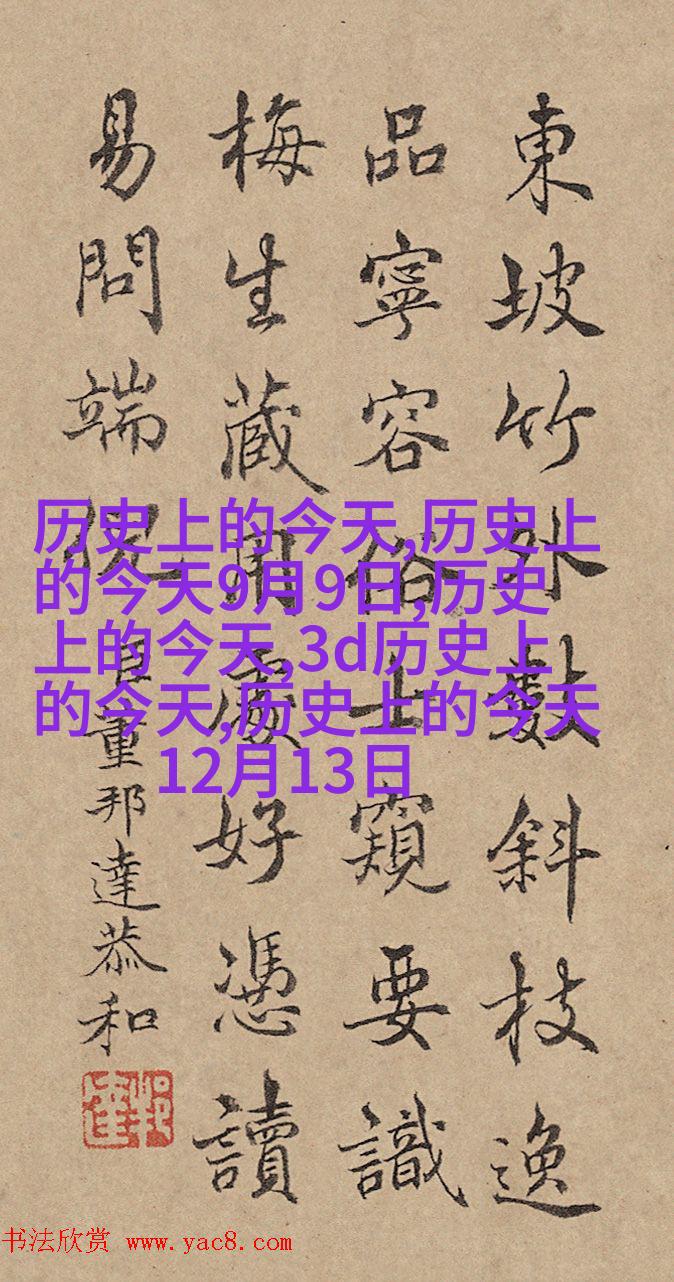 東坡竹外數斜枝逸
品寧容俗士窺要識
梅生蔵用處好憑讀
易問端倪
臣董邦達恭和
历史上的今天,历史上
的今天9月9日,历史
上的今天,3d历史上
的今天,历史上的今天
12月13日
书法欣赏 www.yac8.com